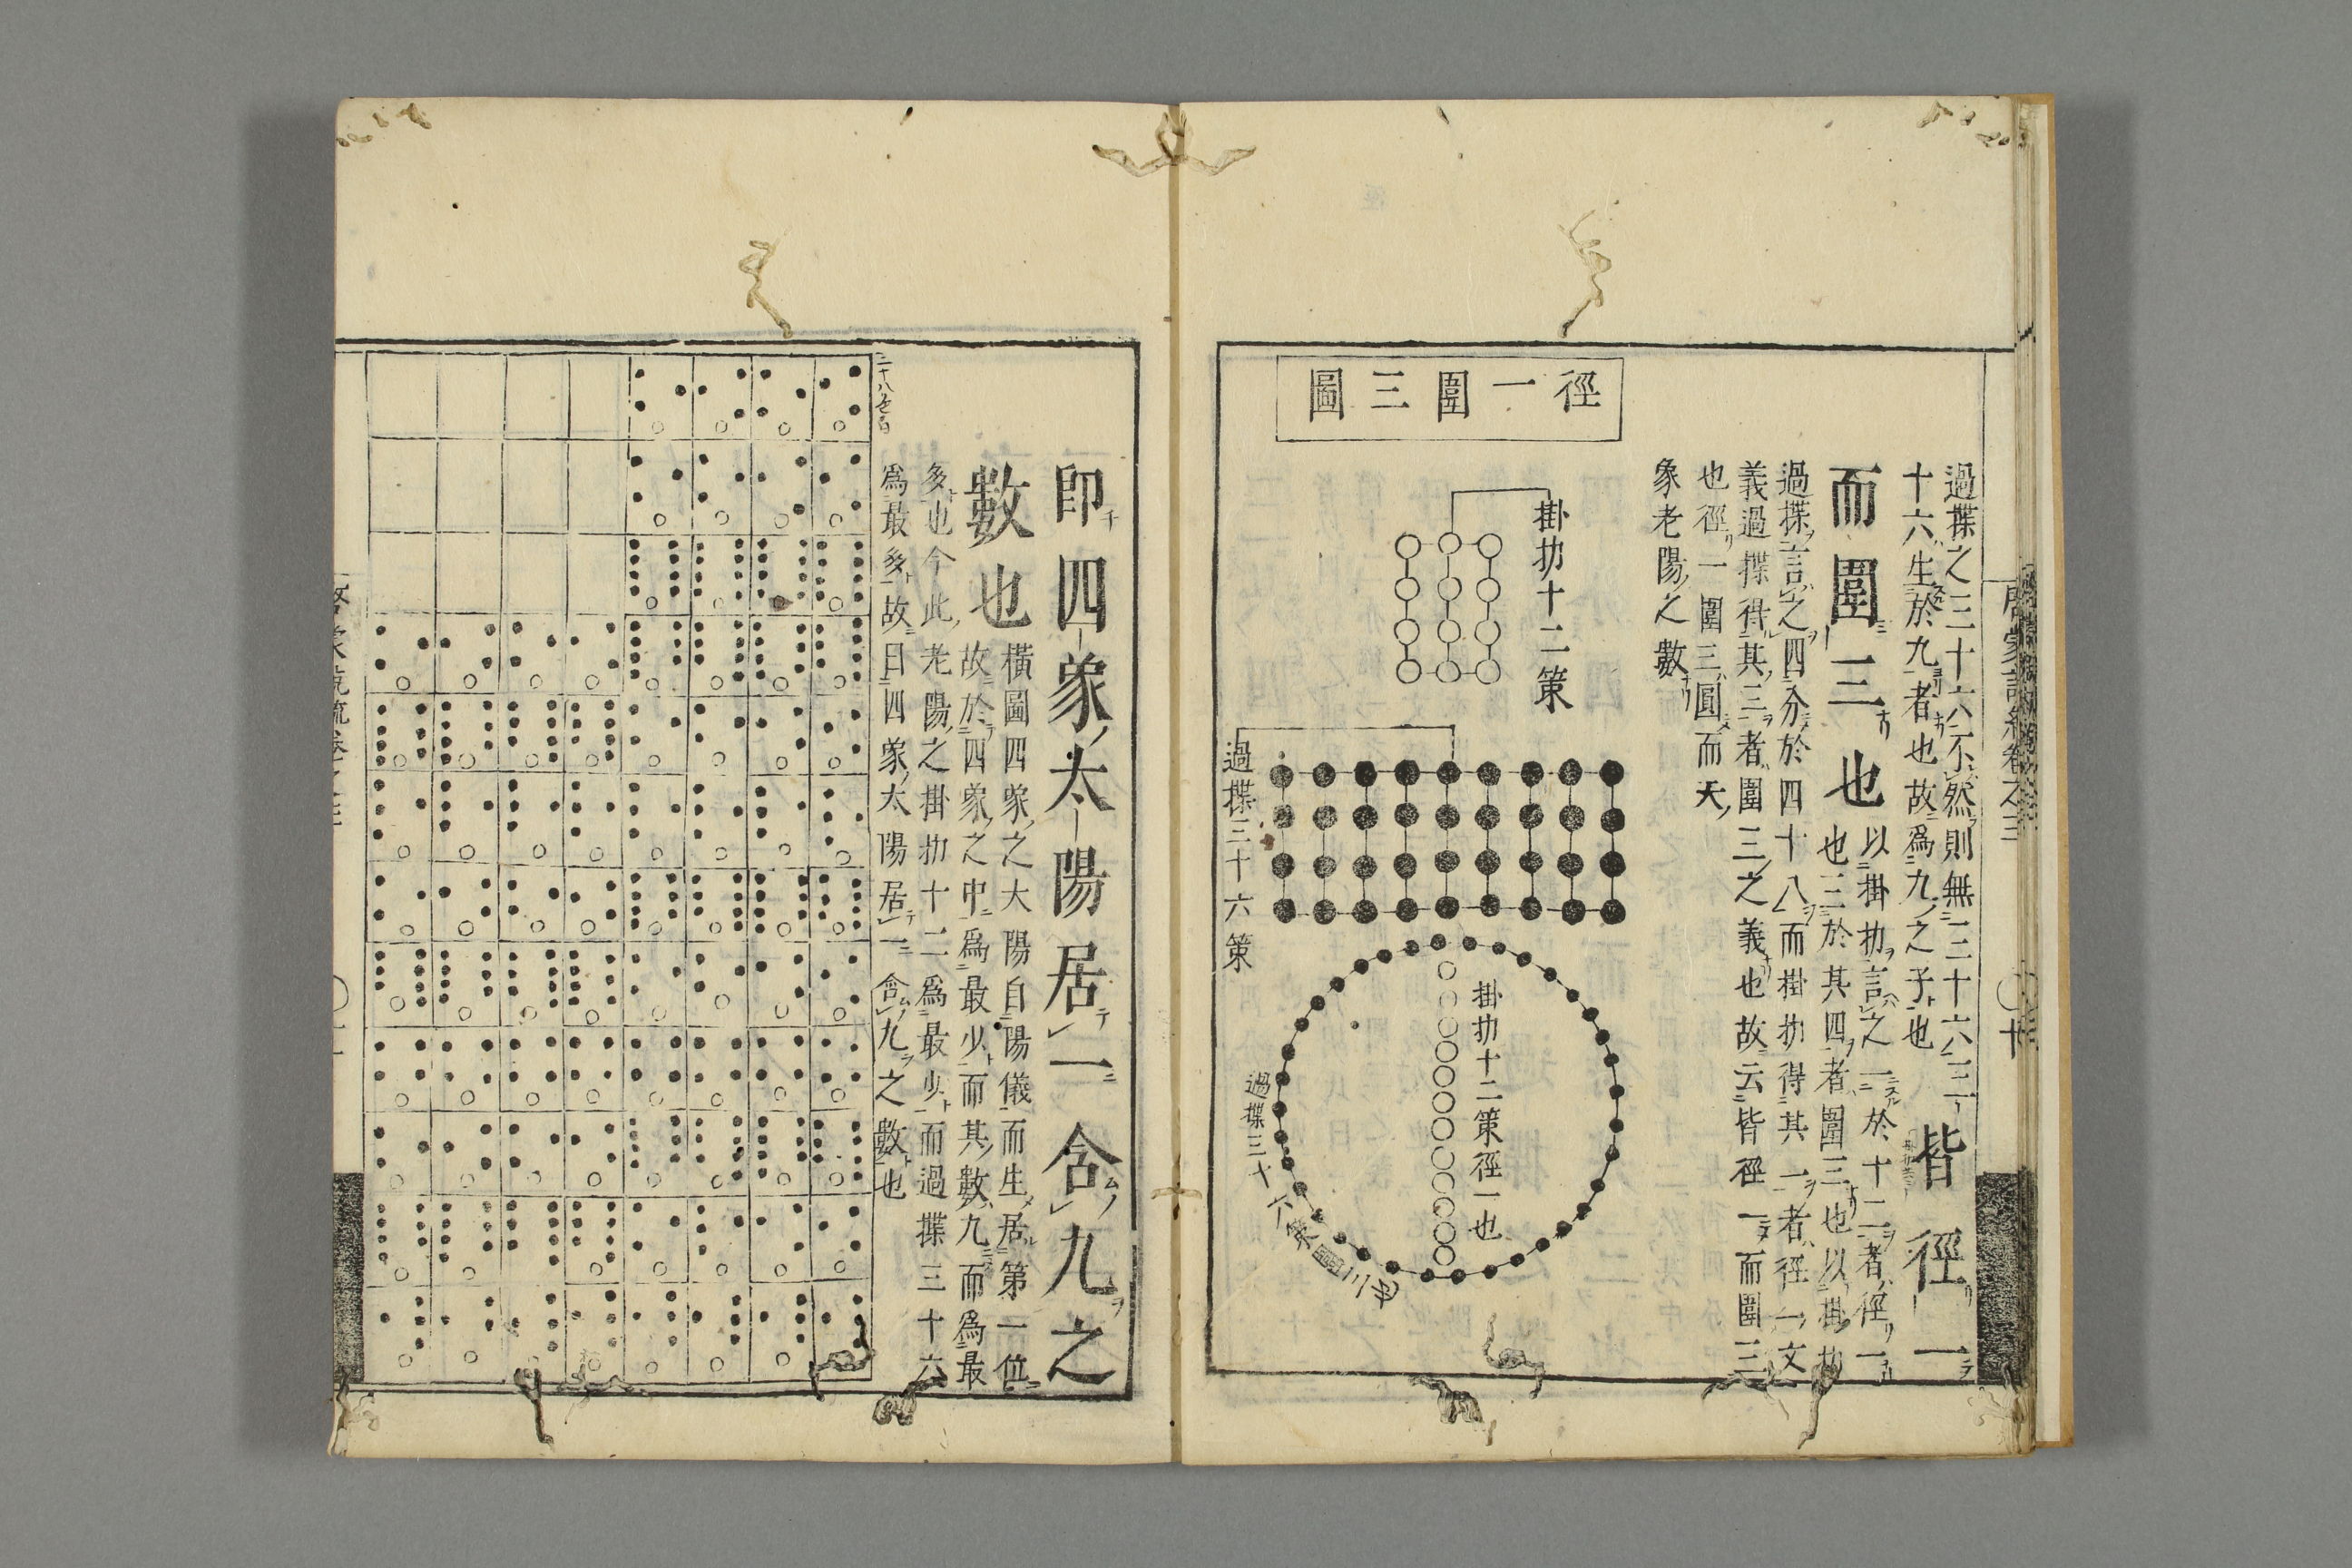 過揲之三十六不然則無三十六三
十六生於九者也故爲九之子也
皆徑一
而圍三也
以掛扐言之一於十二者徑一
也三於其四者圍三也以掛扐
過揲言之四分於四十八而掛扐得其一者徑一文
義過揲得其三者圍三之義也故云皆徑一而圍三
也徑一圍三圓而天
象老陽之數
徑一圍三圖
掛扐十二策
過揲三十六策
掛扐十二策徑一也
過揲三十六策圍三也
卽四象太陽居一含九之
數也
橫圖四象之大陽自陽儀而生居第一位
故於四象之中爲最少而其數九而爲最
多也今此老陽之掛扐十二爲最少而過揲三十六
爲最多故曰四象太陽居一含九之數也